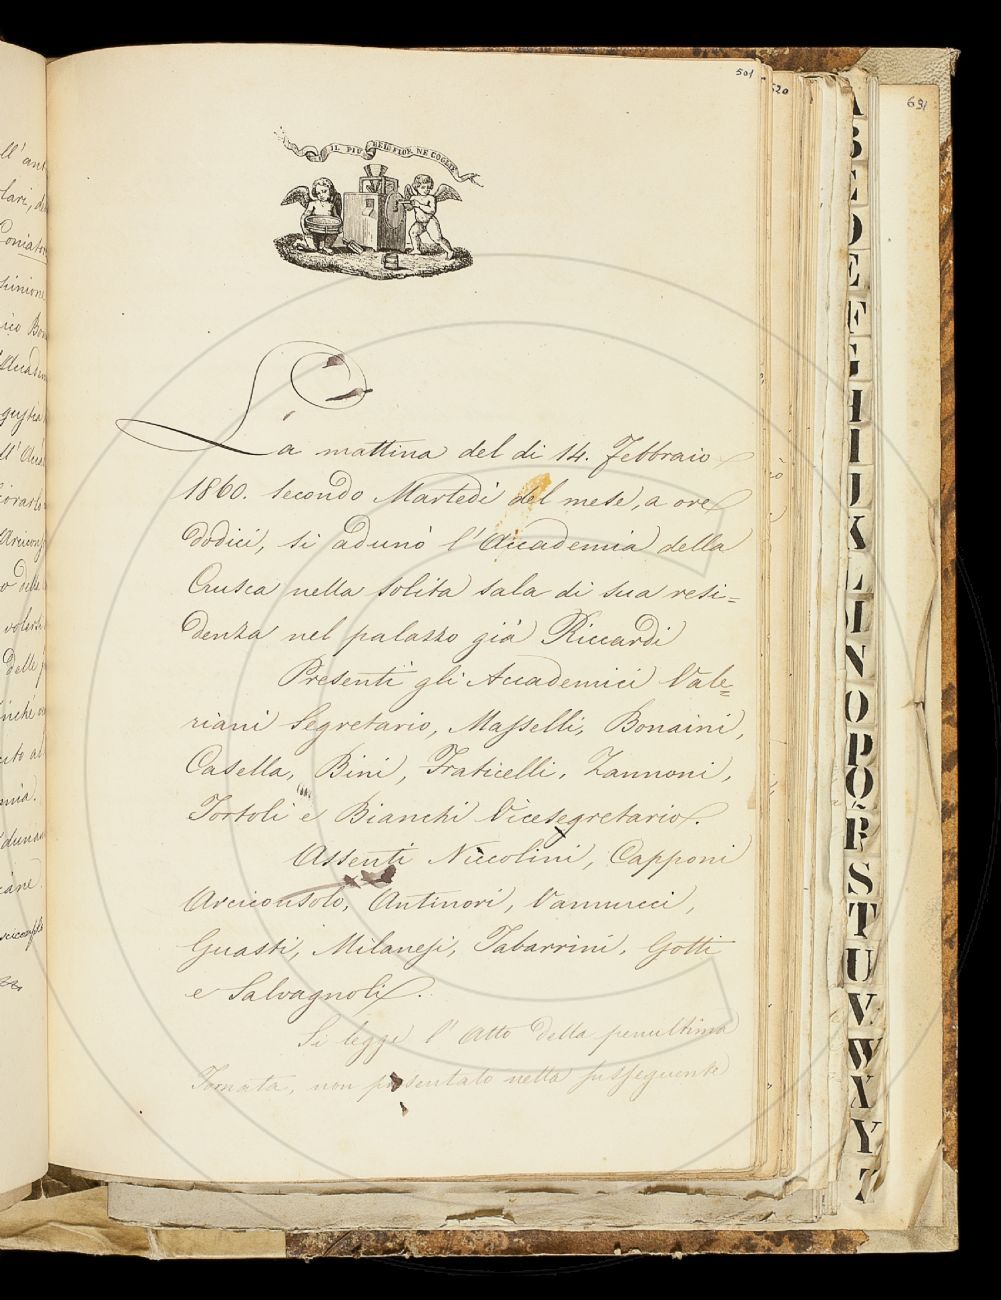 501
520
691
IL PIÙ BEL FIOR NE COGLIE
La mattina del dì 14. Febbraio
1860. secondo Martedì del mese, a ore
dodici, si adunò l'Accademia della
Crusca nella solita sala di sua resi=
denza nel palazzo già Riccardi
Presenti gli Accademici Vale=
riani Segretario, Masselli, Bonaini,
Casella, Bini, Fraticelli, Zannoni,
Tortoli e Bianchi Vicesegretario.
Assenti Niccolini, Capponi
Arciconsolo, Antinori, Vannucci,
Guasti, Milanesi, Tabarrini, Gotti
e Salvagnoli.
Si legge l'Atto della penultima
Tornata, non presentato nella susseguente
A
B
C
D
E
F
G
H
I
J
K
L
M
N
O
P
Q
R
S
T
U
V
W
X
Y
Z